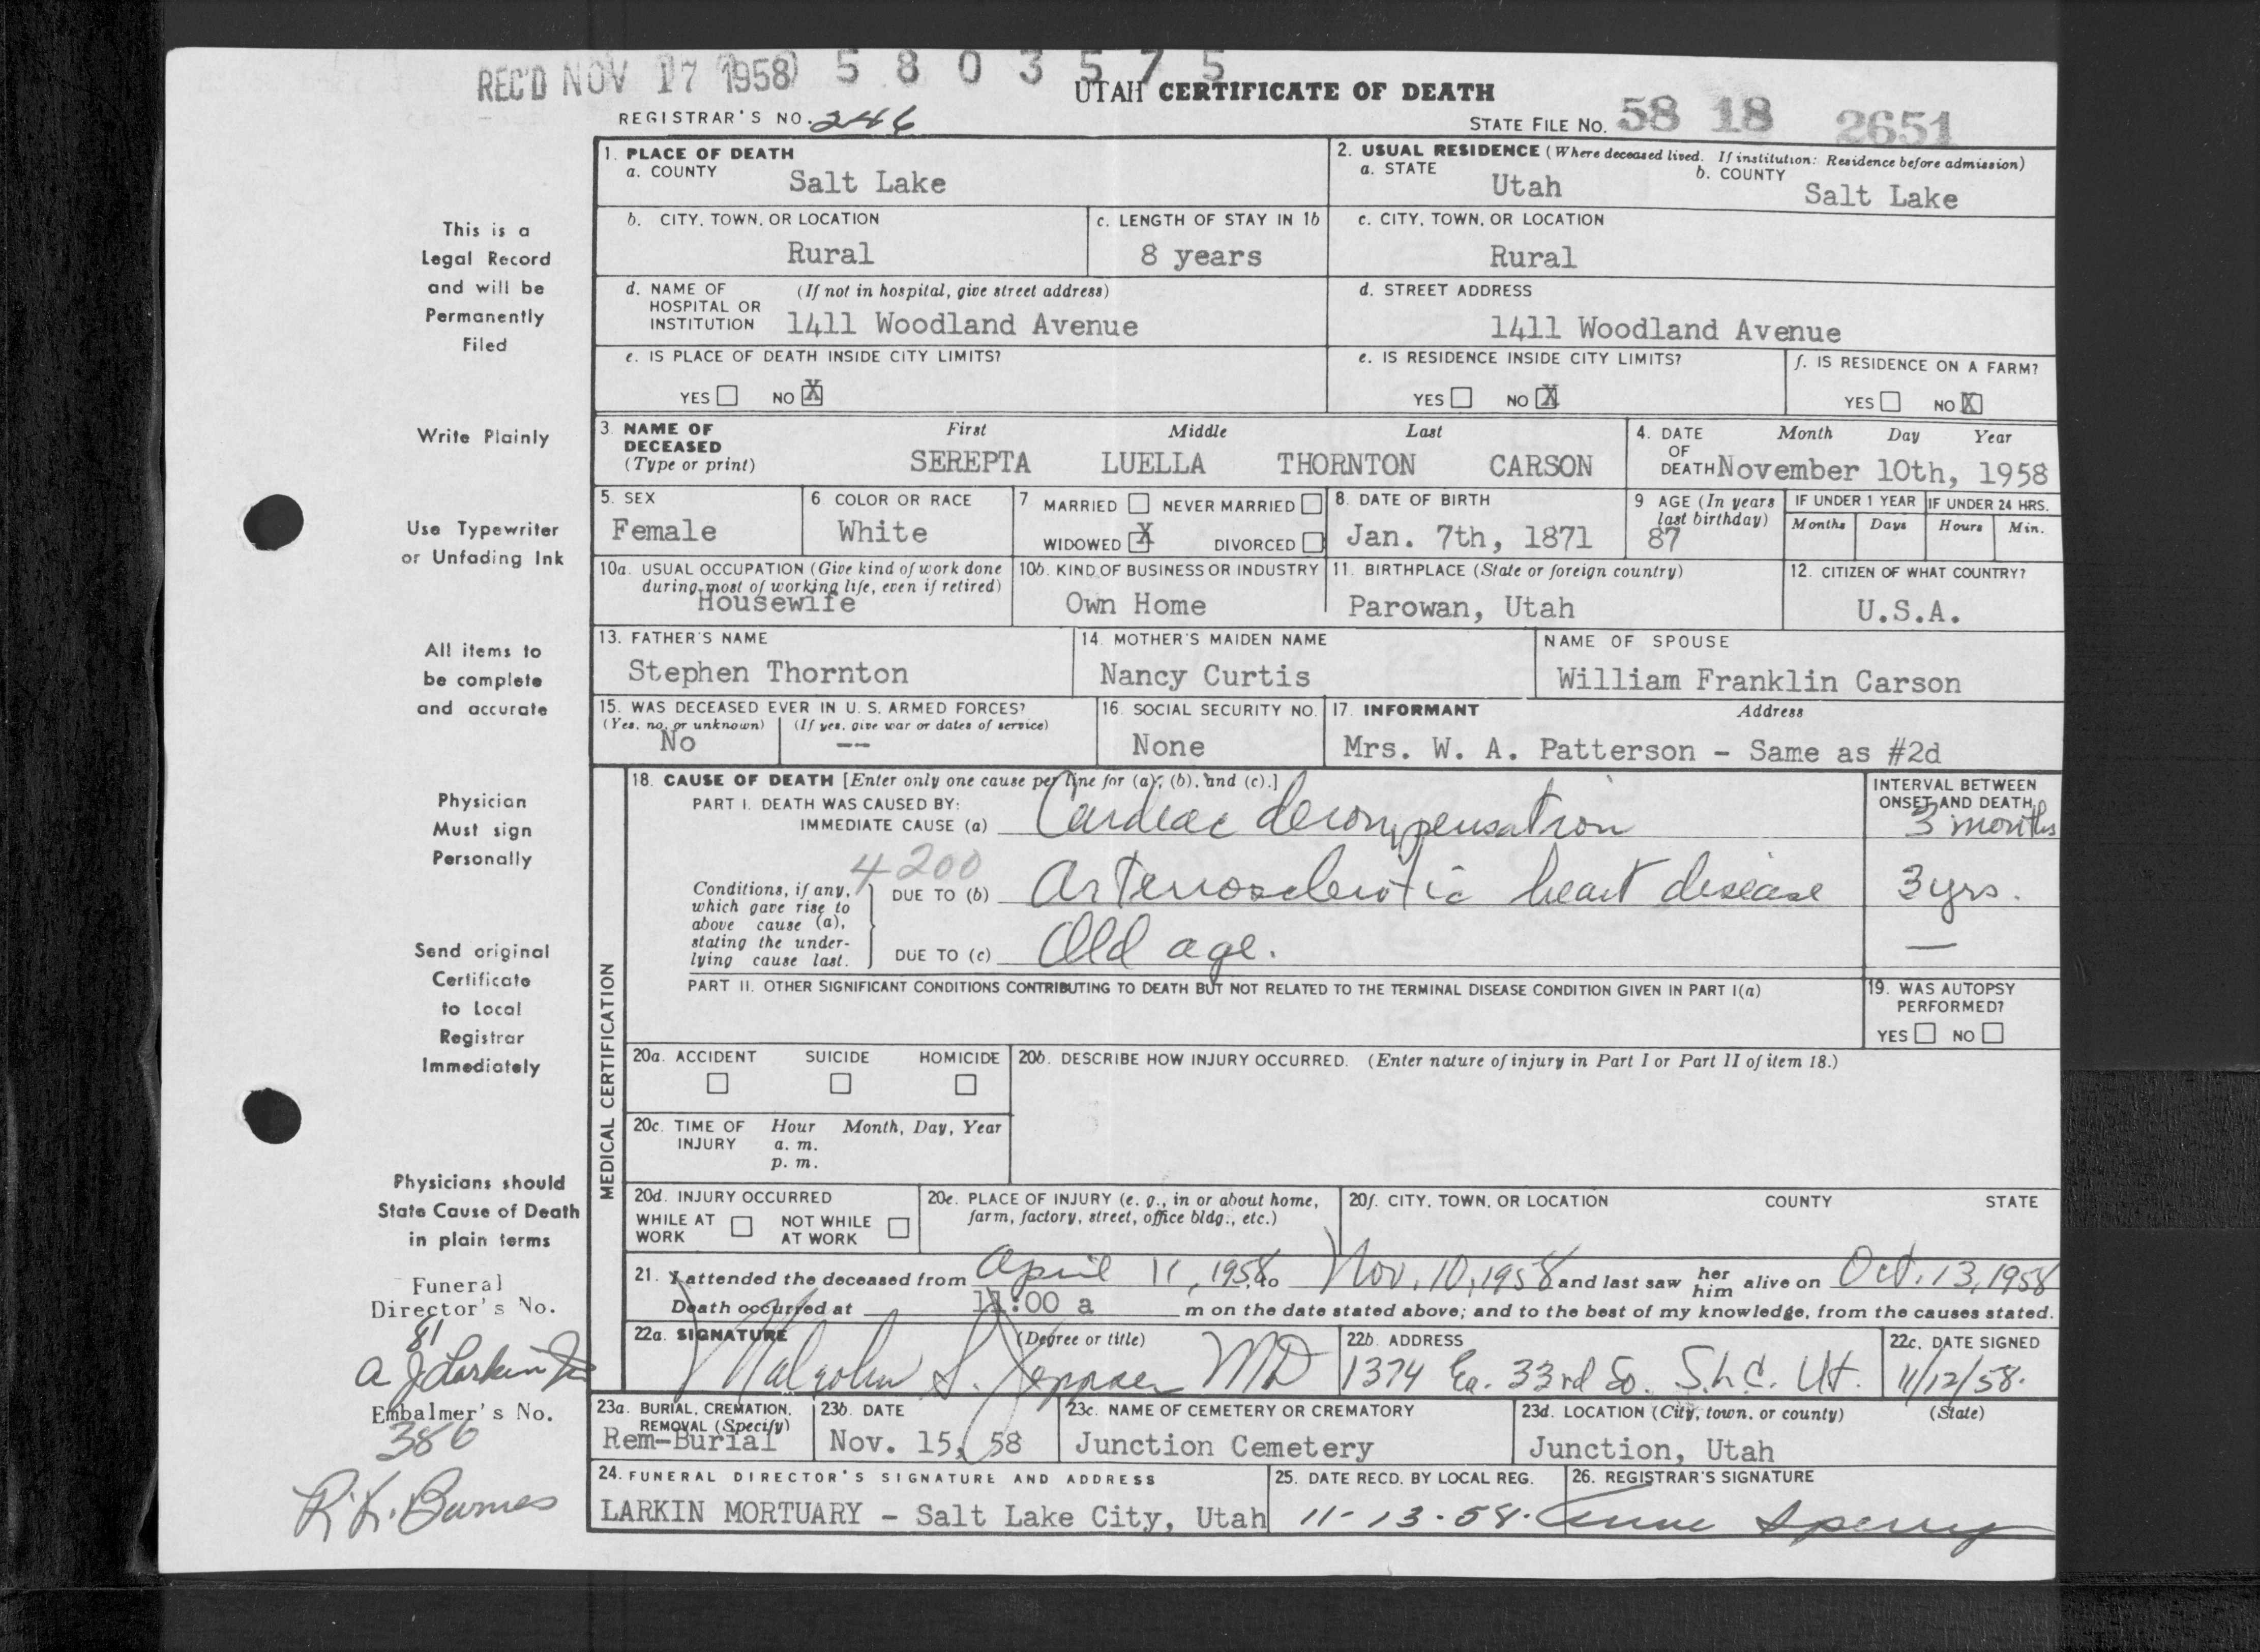 REC'D NOV 17 1958 5 8 0 3 5 7 5
UTAH CERTIFICATE OF DEATH
REGISTRAR'S NO. 246
STATE FILE NO. 58 18 2651
1. PLACE OF DEATH
a. COUNTY Salt Lake
2. USUAL RESIDENCE (Where deceased lived. If institution: Residence before admission)
a. STATE Utah b. COUNTY Salt Lake
b. CITY, TOWN, OR LOCATION Rural
c. LENGTH OF STAY IN 1b 8 years
c. CITY, TOWN, OR LOCATION Rural
d. NAME OF HOSPITAL OR INSTITUTION (If not in hospital, give street address)
1411 Woodland Avenue
d. STREET ADDRESS
1411 Woodland Avenue
e. IS PLACE OF DEATH INSIDE CITY LIMITS?
YES NO X
e. IS RESIDENCE INSIDE CITY LIMITS?
YES NO X
f. IS RESIDENCE ON A FARM?
YES NO X
3. NAME OF DECEASED (Type or print)
First Middle Last
SEREPTA LUELLA THORNTON CARSON
4. DATE OF DEATH Month Day Year
November 10th, 1958
5. SEX
Female
6 COLOR OR RACE
White
7 MARRIED NEVER MARRIED
WIDOWED X DIVORCED
8. DATE OF BIRTH
Jan. 7th, 1871
9 AGE (In years last birthday)
87
IF UNDER 1 YEAR
Months Days
IF UNDER 24 HRS.
Hours Min.
10a. USUAL OCCUPATION (Give kind of work done during most of working life, even if retired)
Housewife
10b. KIND OF BUSINESS OR INDUSTRY
Own Home
11. BIRTHPLACE (State or foreign country)
Parowan, Utah
12. CITIZEN OF WHAT COUNTRY?
U.S.A.
13. FATHER'S NAME
Stephen Thornton
14. MOTHER'S MAIDEN NAME
Nancy Curtis
NAME OF SPOUSE
William Franklin Carson
15. WAS DECEASED EVER IN U.S. ARMED FORCES?
(Yes, no, or unknown) (If yes, give war or dates of service)
No --
16. SOCIAL SECURITY NO.
None
17. INFORMANT Address
Mrs. W. A. Patterson - Same as #2d
MEDICAL CERTIFICATION
18. CAUSE OF DEATH [Enter only one cause per line for (a), (b), and (c).]
INTERVAL BETWEEN ONSET AND DEATH
PART I. DEATH WAS CAUSED BY:
IMMEDIATE CAUSE (a) Cardiac decompensation 3 months
4200
Conditions, if any, which gave rise to above cause (a), stating the underlying cause last.
DUE TO (b) Arteriosclerotic heart disease 3 yrs.
DUE TO (c) Old age. —
PART II. OTHER SIGNIFICANT CONDITIONS CONTRIBUTING TO DEATH BUT NOT RELATED TO THE TERMINAL DISEASE CONDITION GIVEN IN PART I(a)
19. WAS AUTOPSY PERFORMED?
YES NO
20a. ACCIDENT SUICIDE HOMICIDE
20b. DESCRIBE HOW INJURY OCCURRED. (Enter nature of injury in Part I or Part II of item 18.)
20c. TIME OF INJURY Hour Month, Day, Year
a. m.
p. m.
20d. INJURY OCCURRED
WHILE AT WORK NOT WHILE AT WORK
20e. PLACE OF INJURY (e. g., in or about home, farm, factory, street, office bldg., etc.)
20f. CITY, TOWN, OR LOCATION COUNTY STATE
21. I attended the deceased from April 11, 1958 to Nov. 10, 1958 and last saw her him alive on Oct. 13, 1958
Death occurred at 11:00 a m on the date stated above; and to the best of my knowledge, from the causes stated.
22a. SIGNATURE (Degree or title)
Malcolm S. MD
22b. ADDRESS
1374 Ea. 33rd So. S.L.C. Ut.
22c. DATE SIGNED
11/12/58.
23a. BURIAL, CREMATION, REMOVAL (Specify)
Rem-Burial
23b. DATE
Nov. 15, 58
23c. NAME OF CEMETERY OR CREMATORY
Junction Cemetery
23d. LOCATION (City, town, or county) (State)
Junction, Utah
24. FUNERAL DIRECTOR'S SIGNATURE AND ADDRESS
LARKIN MORTUARY - Salt Lake City, Utah
25. DATE RECD. BY LOCAL REG.
11-13-58.
26. REGISTRAR'S SIGNATURE
Anne Sperry
This is a
Legal Record
and will be
Permanently
Filed
Write Plainly
Use Typewriter
or Unfading Ink
All items to
be complete
and accurate
Physician
Must sign
Personally
Send original
Certificate
to Local
Registrar
Immediately
Physicians should
State Cause of Death
in plain terms
Funeral
Director's No.
81
A J Larkin Jr
Embalmer's No.
386
R. K. Burnes